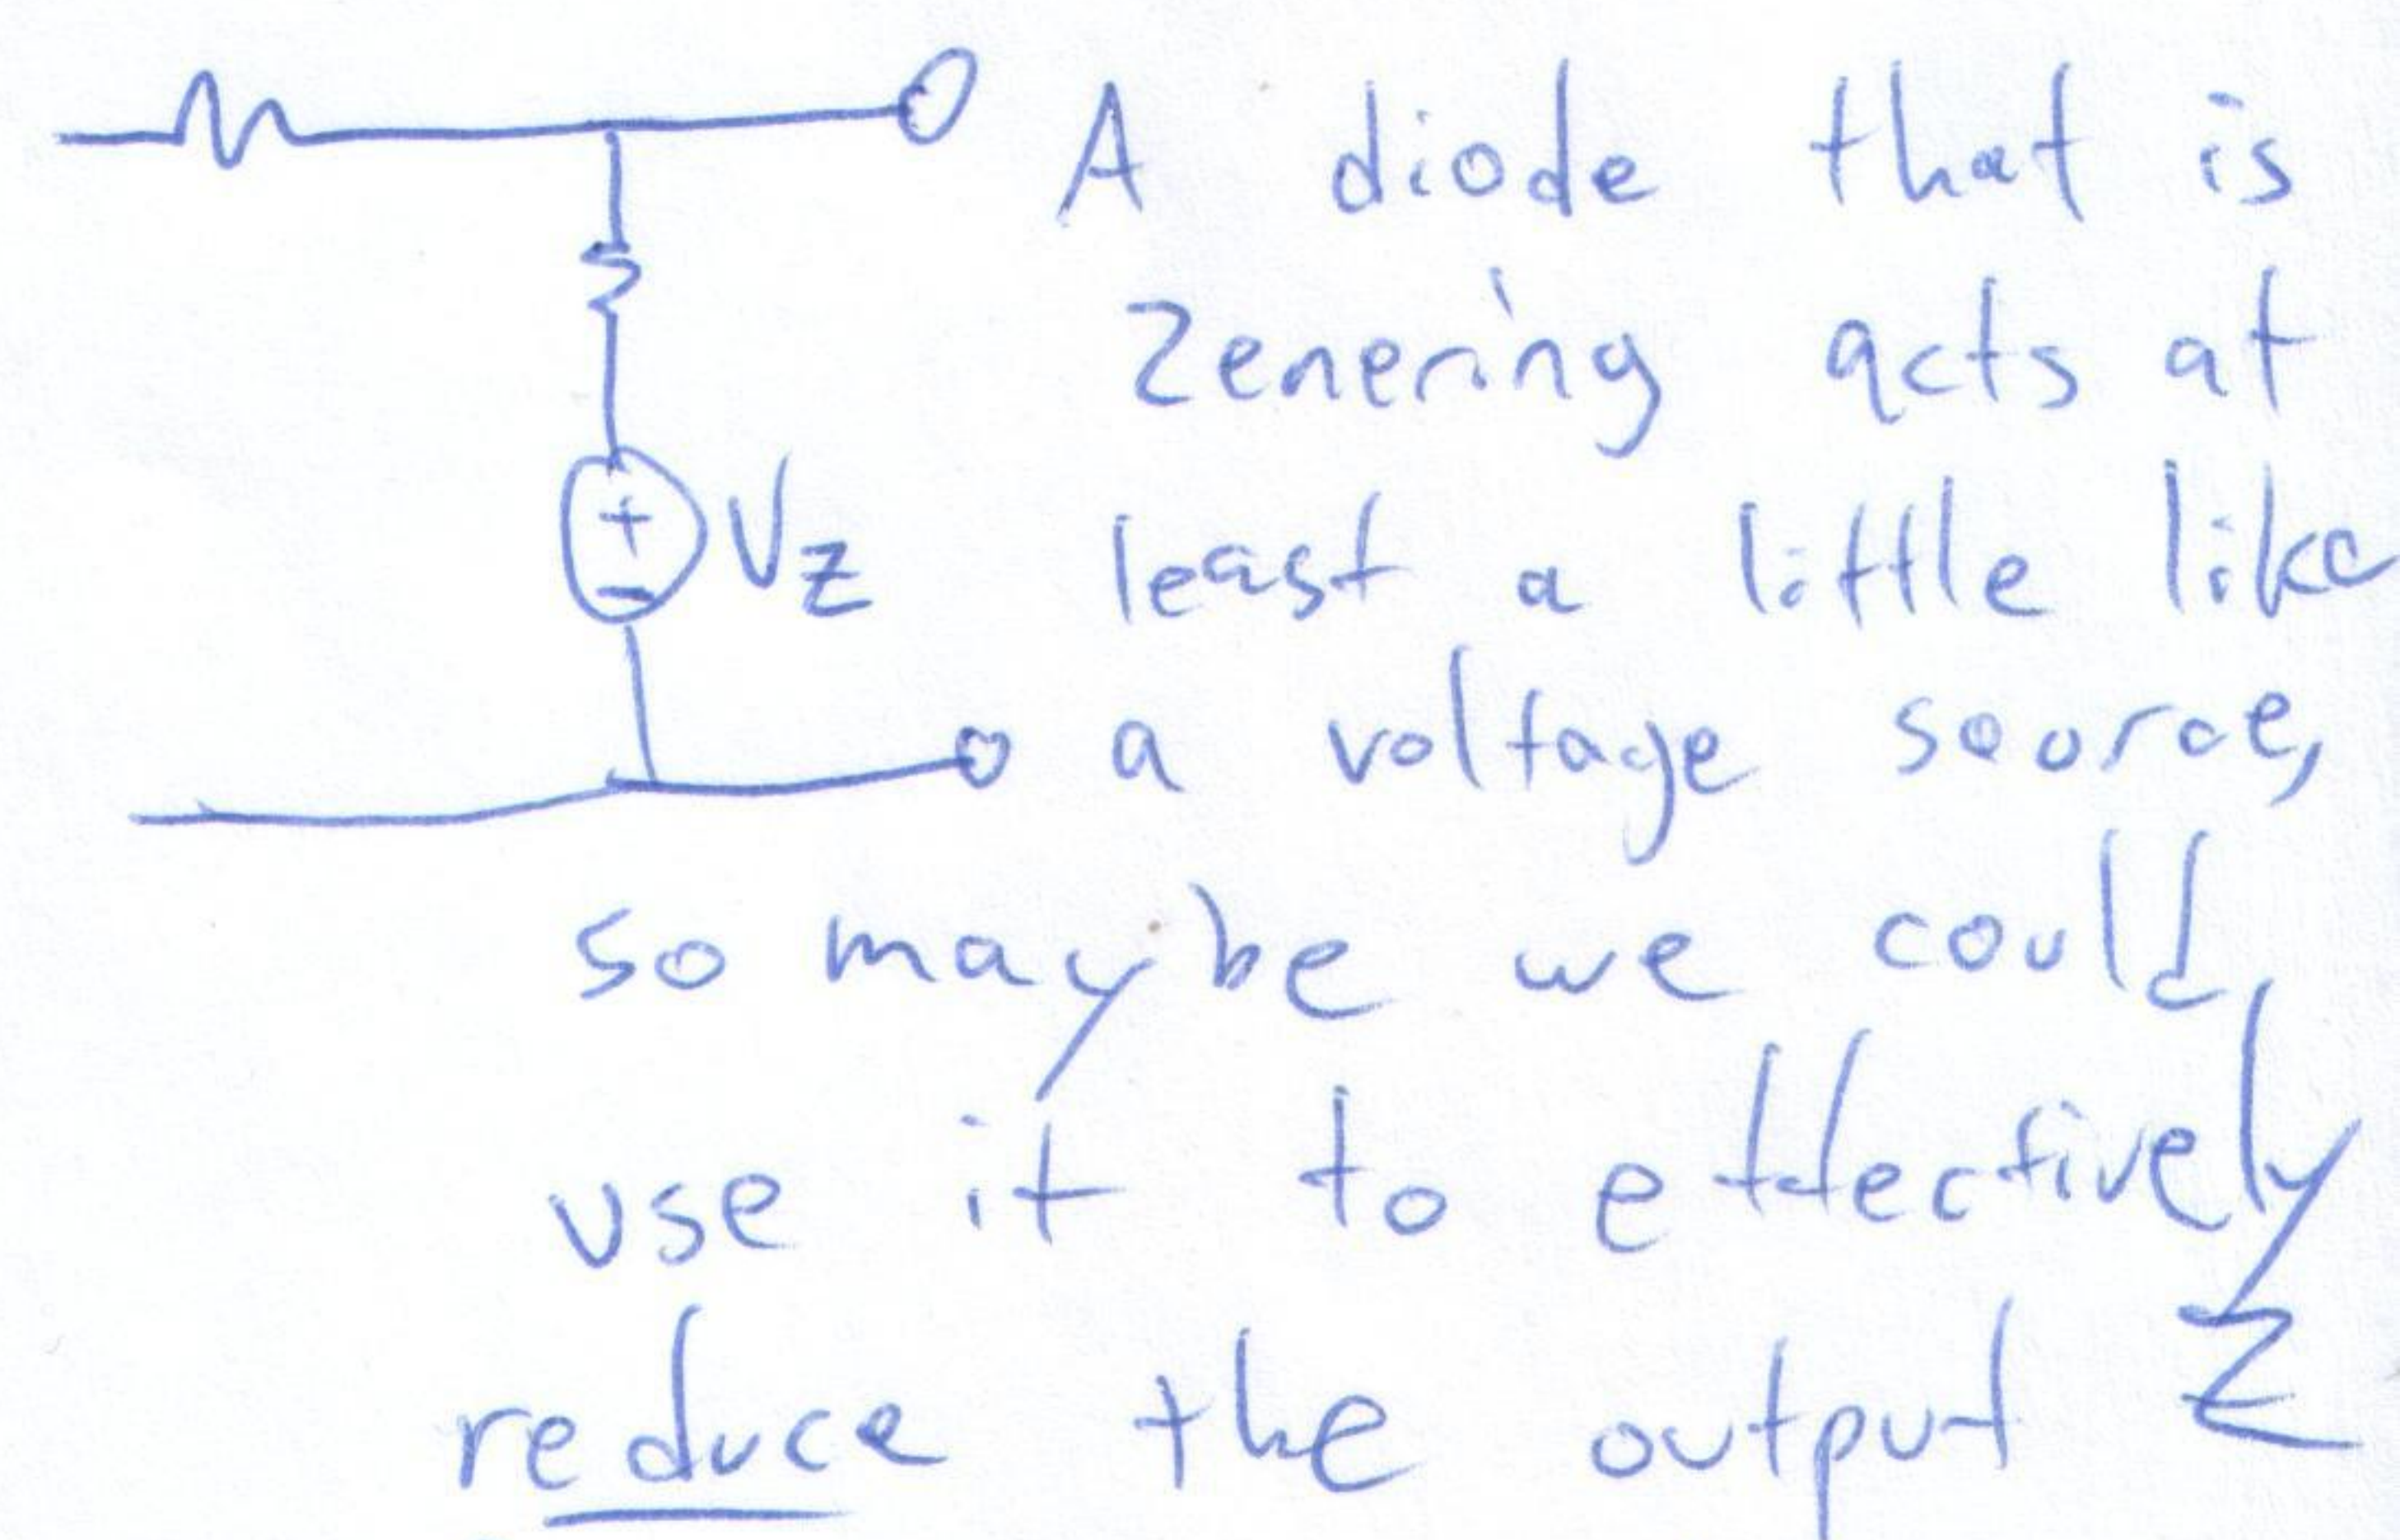 A diode that is
Zenering acts at
+
-
Vz
least a little like
a voltage source,
so maybe we could
use it to effectively
reduce the output Z